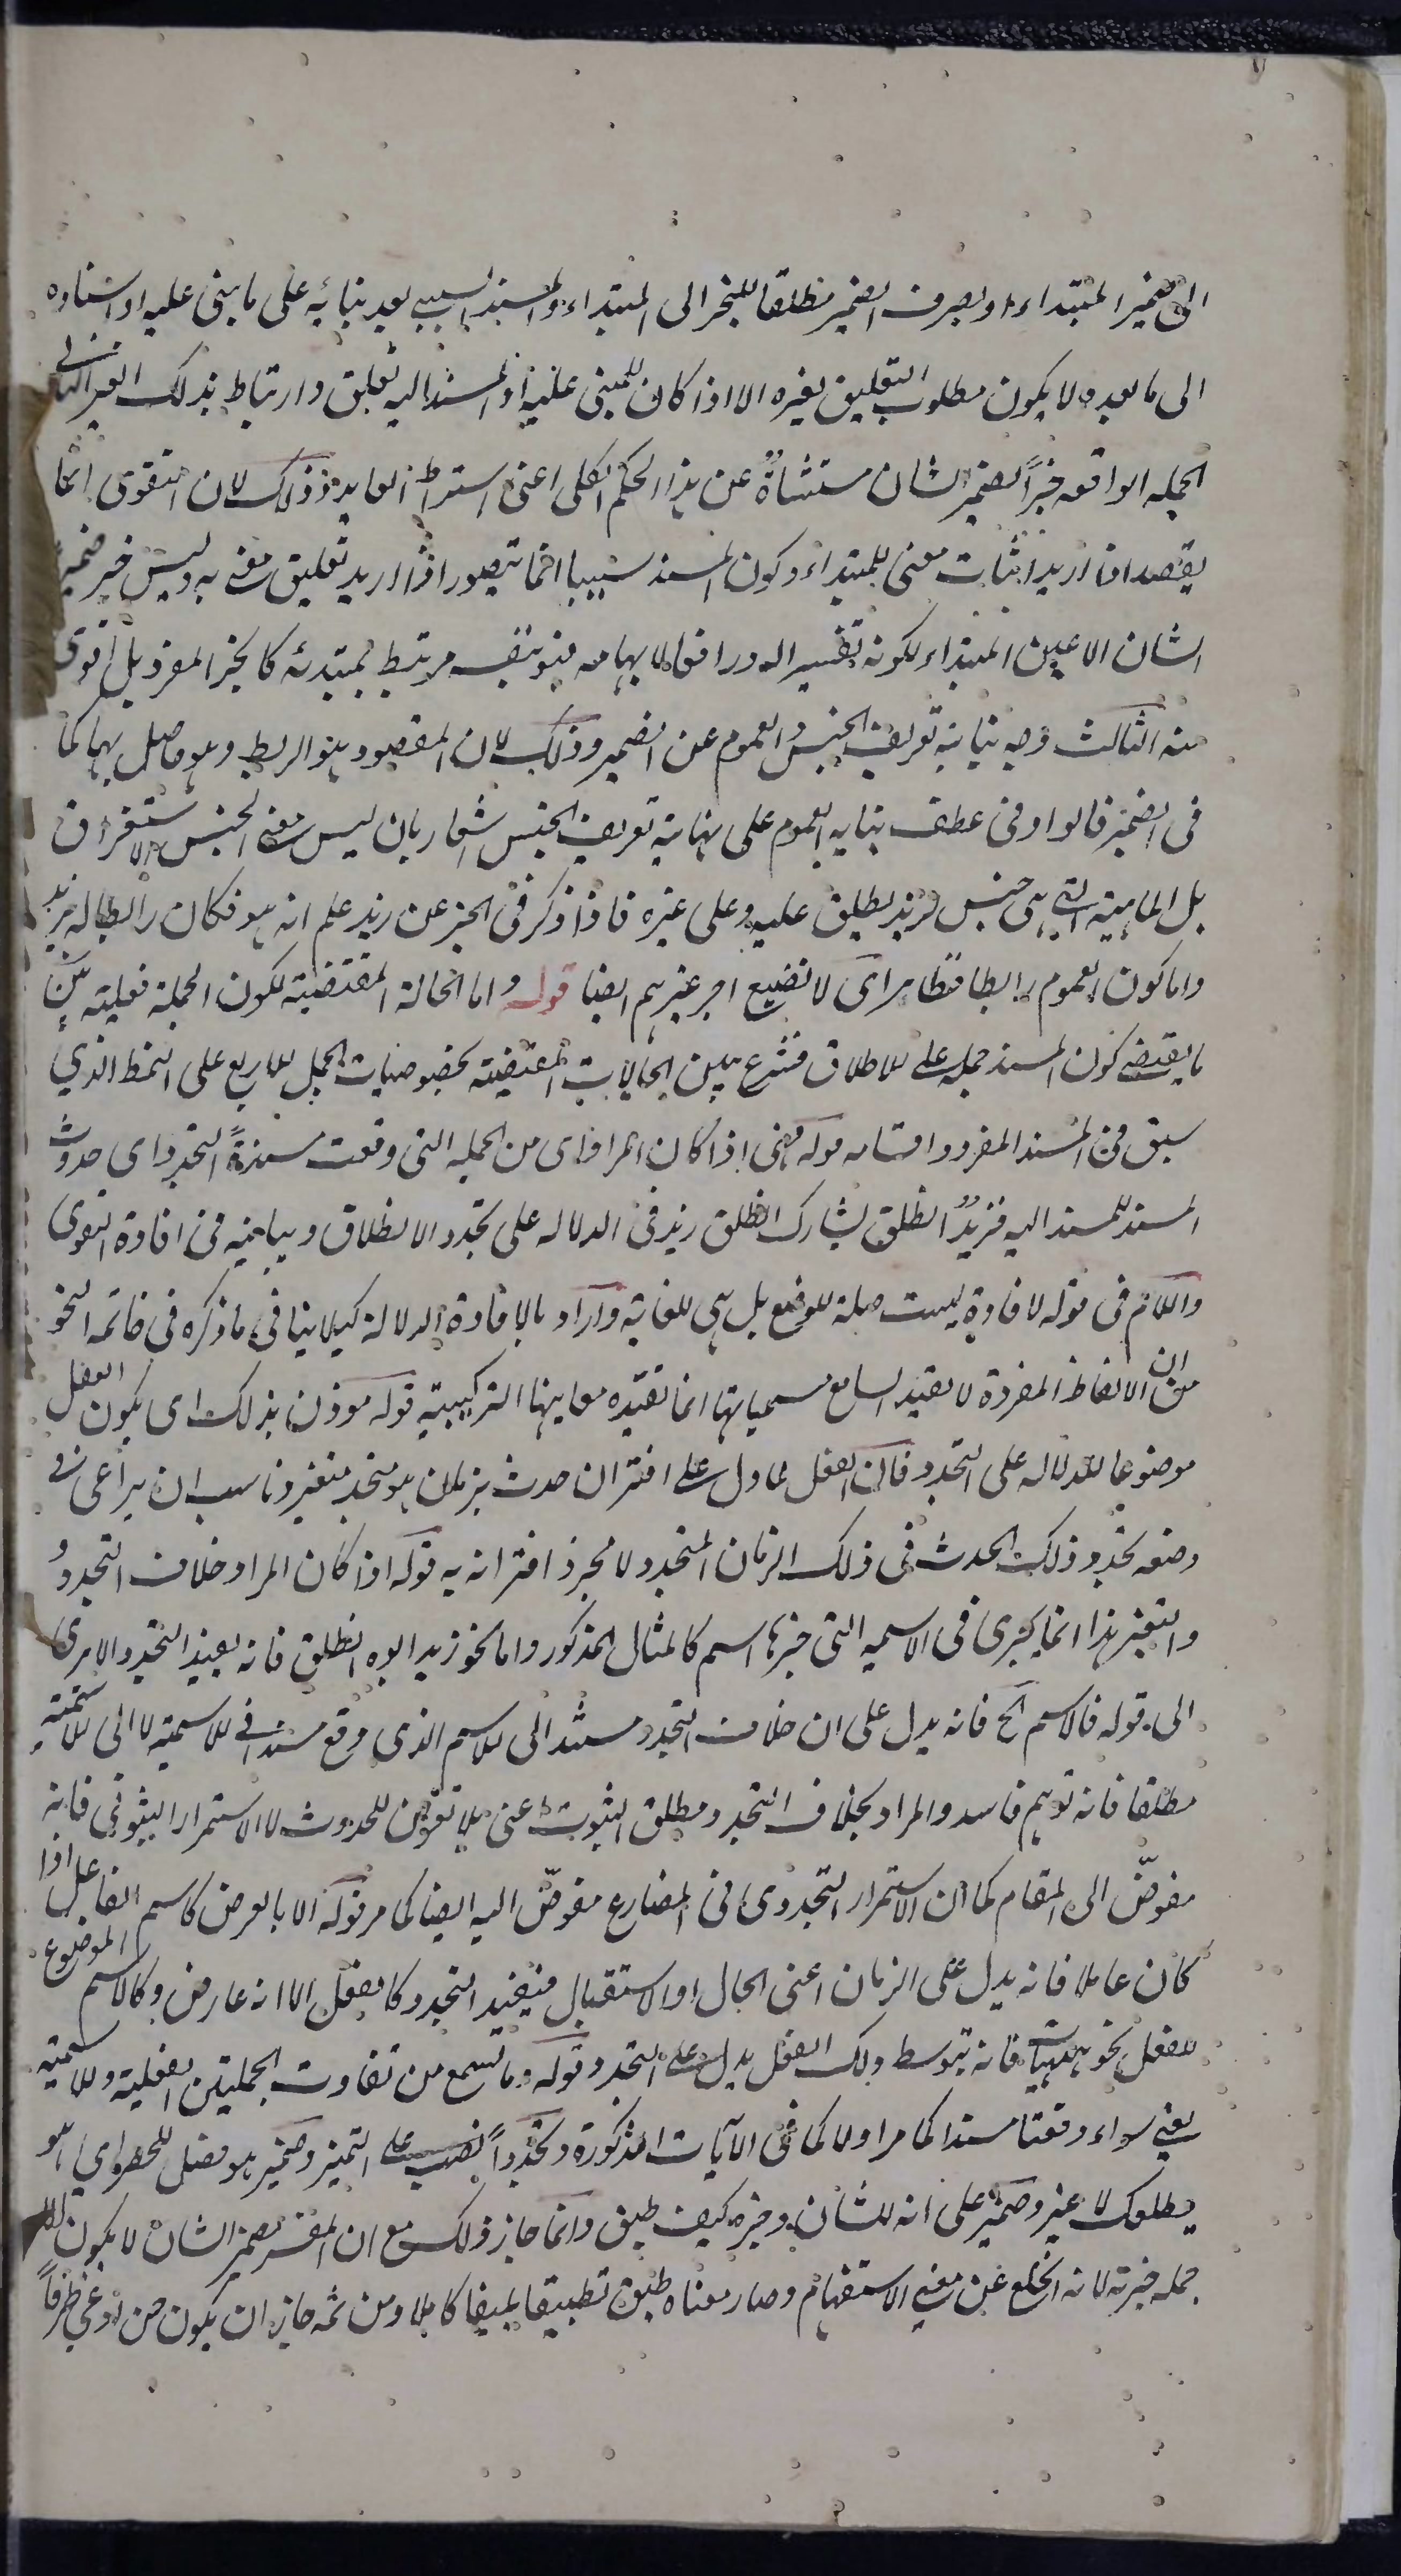 الى ضمير المبتداء او بصرف الضمير مطلقا للخبر الى المبتداء والمسند السببى بعد بنائه على ما بنى عليه او اسناده
الى ما بعده لا يكون مطلوب التعليق بغيره الا اذا كان للمبنى عليه او المسند اليه تعلق وارتباط بذلك الغير الثانى
الجمله الواقعه خبرًا لضمير الشان مستثناةٌ عن هذا الحكم الكلى اعنى اشتراط العايد وذلك لان التقوى انما
يقصد اذا اريد اثبات معنى للمبتداء وكون المسند سببيا انما يتصور اذا اريد تعليق معنى به وليس خبر ضمير
الشان الا عين المبتداء لكونه تفسيرا له ورافعا لابهامه فهو بنفسه مرتبط بمبتدئه كالخبر المفرد بل اقوى
منه الثالث وجه نيابة تعريف الجنس والعموم عن الضمير وذلك لان المقصود هو الربط وهو حاصل بهما كما
فى الضمير قالوا وفى عطف نيابه العموم على نيابة تعريف الجنس اشعار بان ليس معنى الجنس الاستغراق
بل الماهية التى هى جنس لزيد يطلق عليه وعلى غيره فاذا ذكر فى الخبر عن زيد علم انه هو فكان رابطا له بزيد
واما كون العموم رابطا فظاهر اى لا نضيع اجر غيرهم ايضا قوله واما الحالة المقتضية لكون الجملة فعلية بيّن
ما يقتضى كون المسند جمله على الاطلاق فشرع يبين الحالات المقتضية لخصوصيات الجمل الاربع على النمط الذي
سبق فى المسند المفرد واقسامه قوله فهى اذا كان المراد اى من الجمله التى وقعت مسندةً التجدد اى حدوث
المسند للمسند اليه فزيدٌ انطلق يشارك انطلق زيد فى الدلاله على تجدد الانطلاق ويباينه فى افادة التقوى
واللام فى قوله لافادة ليست صلة للوضع بل هى للغاية واراد بالافادة الدلالة كيلا ينافى ما ذكره فى خاتمه النحو
من ان الالفاظ المفردة لا تفيد السامع مسمياتها انما تفيده معاينها التركيبية قوله موذن بذلك اى بكون الفعل
موضوعا للدلاله على التجدد فان الفعل لما دل على اقتران حدث بزمان هو متجدد متغير ناسب ان يراعى فى
وضعه تجدد ذلك الحدث فى ذلك الزمان المتجدد لا مجرد اقترانه به قوله اذا كان المراد خلاف التجددُ
والتغير هذا انما يجرى فى الاسميه التى خبرها اسم كالمثال المذكور واما نحو زيد ابوه انطلق فانه يفيد التجدد الا يرى
الى قوله فالاسم الخ فانه يدل على ان خلاف التجدد مستند الى الاسم الذى وقع مسندا فى الاسمية لا الى الاسمية
مطلقا فانه توهم فاسد والمراد بخلاف التجدد مطلق الثبوت اعنى بلا تعرض للحدوث لا الاستمرار الثبوتى فانه
مفوّض الى المقام كما ان الاستمرار التجددى فى المضارع مفوّض اليه ايضا كما مر قوله الا بالعرض كاسم الفاعل اذا
كان عاملا فانه يدل على الزمان اعنى الحال او الاستقبال فيفيد التجدد كالفعل الا انه عارض وكالاسم الموضوع
للفعل نحو هيهات فانه بتوسط ذلك الفعل يدل على التجدد قوله وما تسمع من تفاوت الجملتين الفعلية والاسمية
يعنى سواء وقعتا مسندا كما مر اولا كما فى الآيات المذكورة وتجددًا نصب على التميز وضمير هو فصل للحصر اي هو
يطلوك لا غير وضمير على انه للشان وخبره كيف طبق وانما جاز ذلك مع ان المفسر لضمير الشان لا يكون الا
جمله خبرية لانه انخلع عن معنى الاستفهام وصار معناه طبق تطبيقا بليغا كاملا ومن ثمه جاز ان يكون ظرفًا